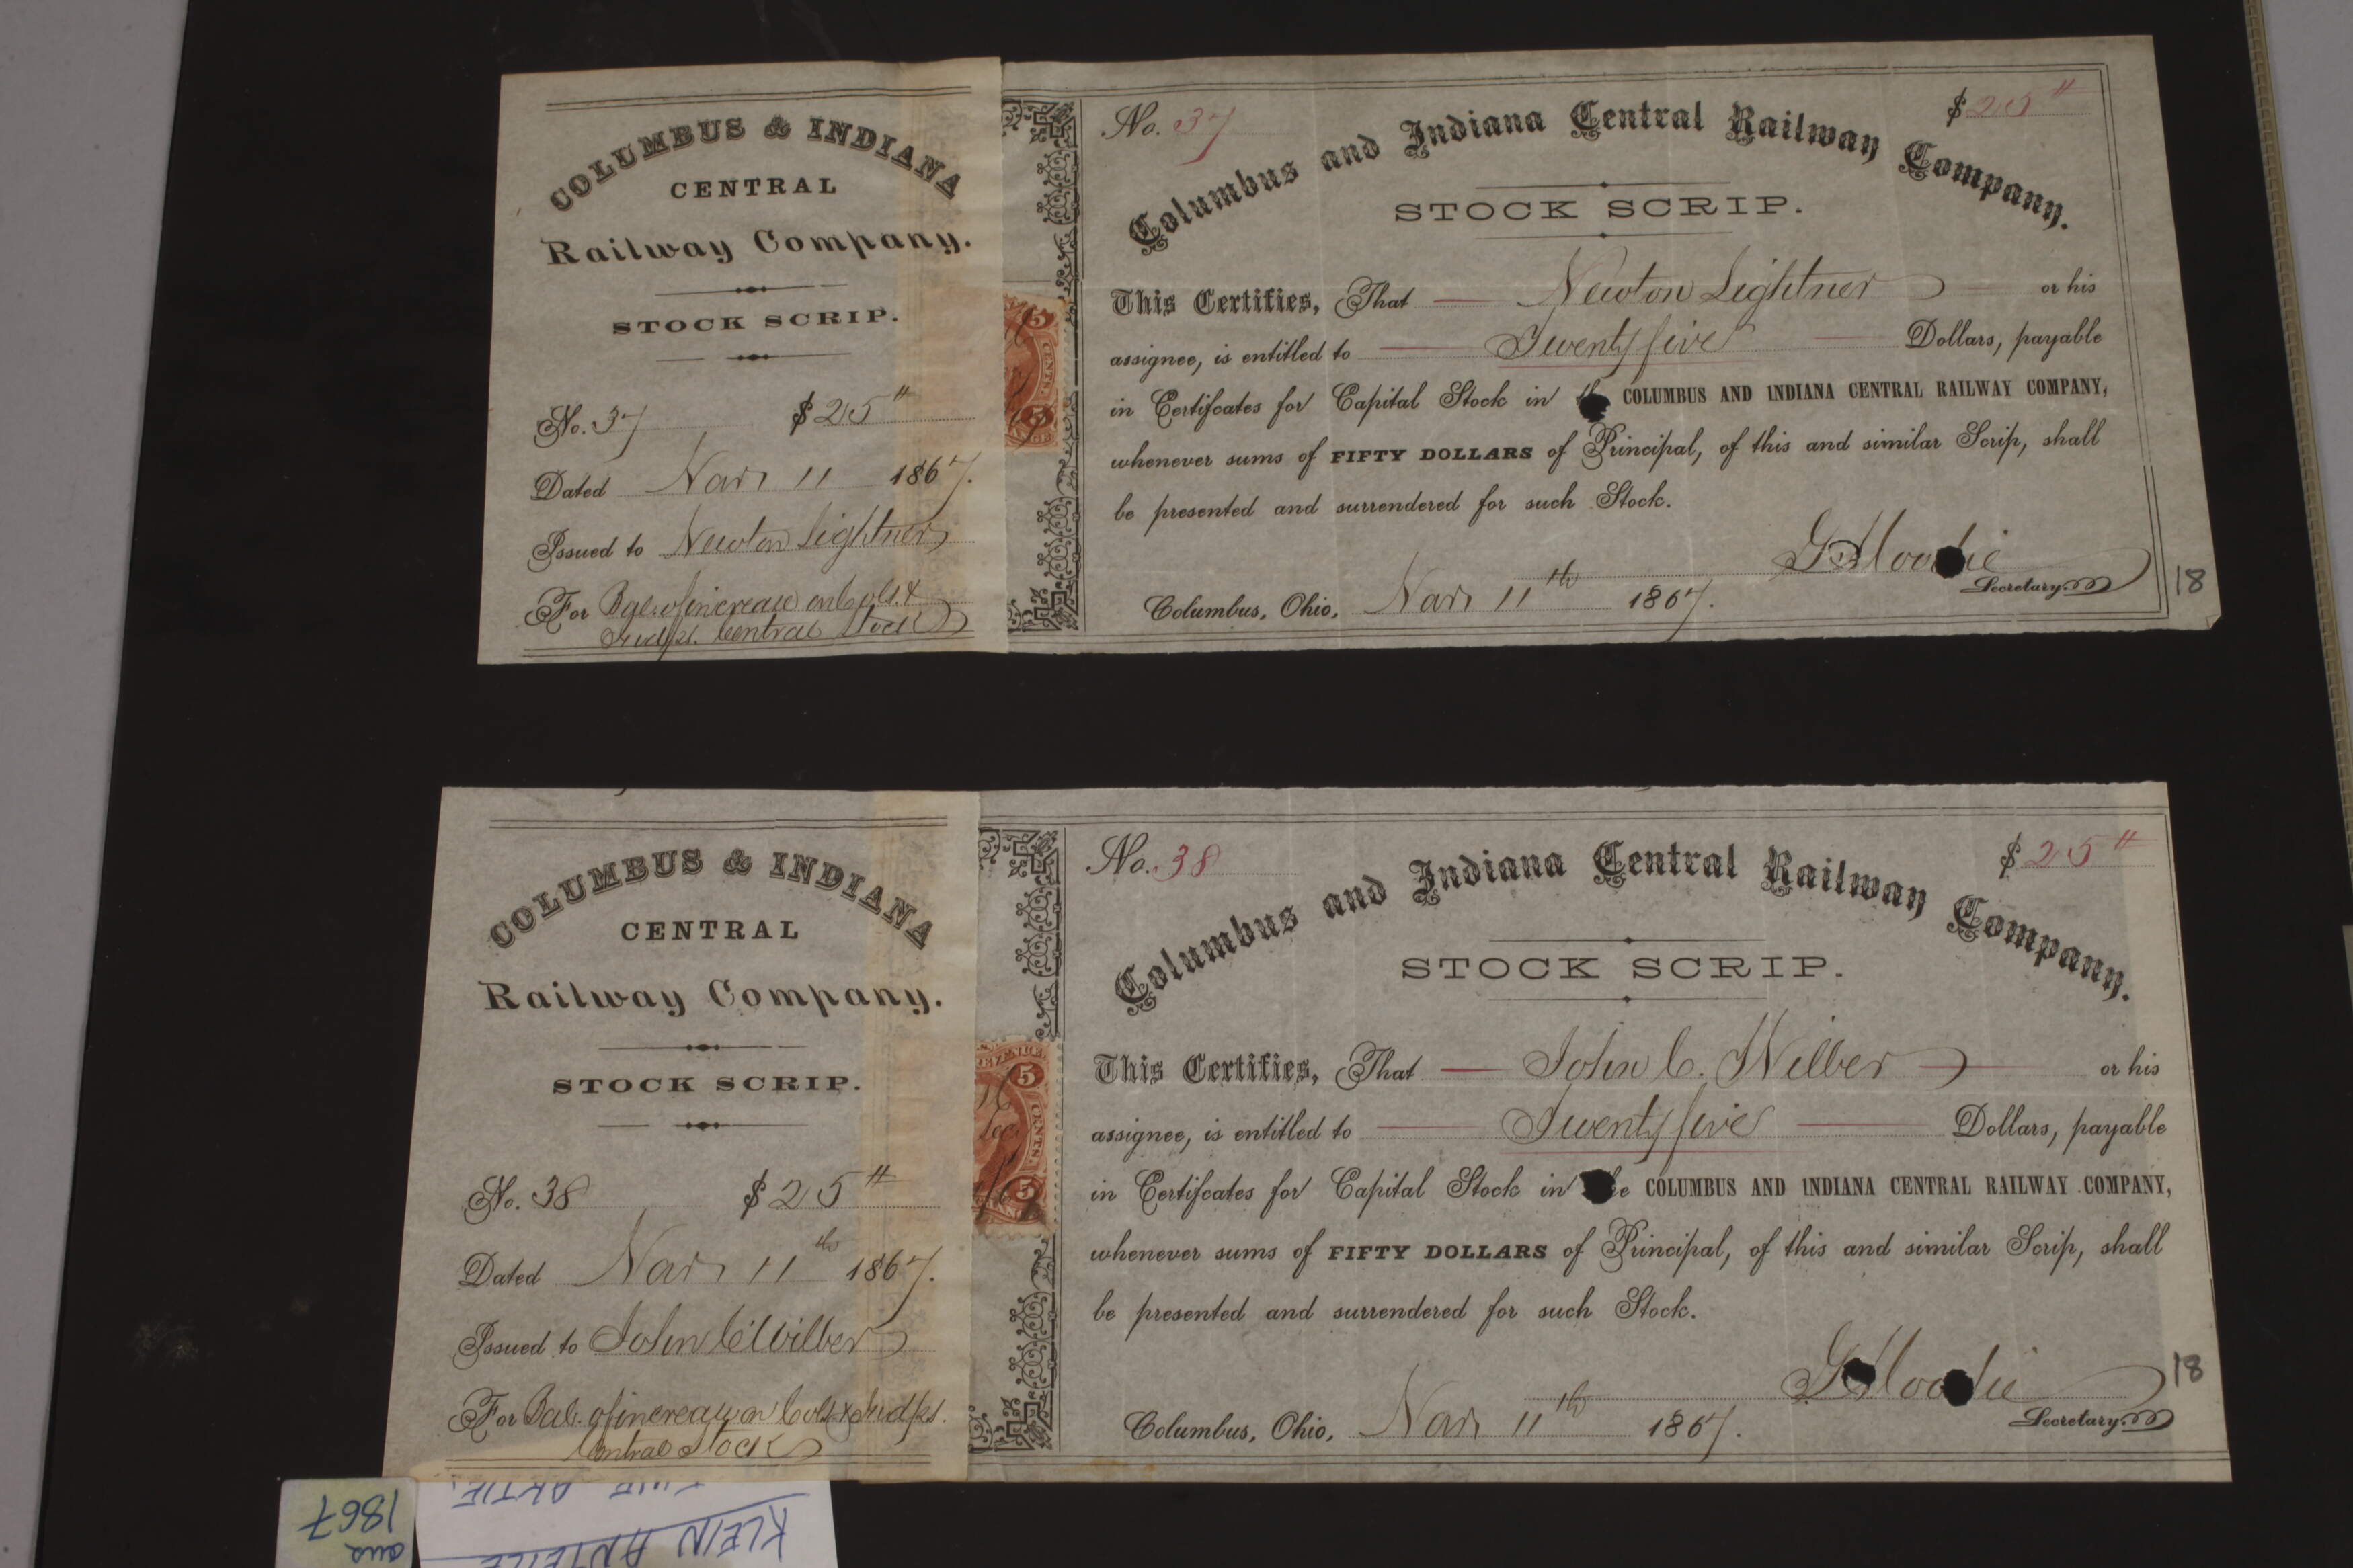 COLUMBUS & INDIANA
CENTRAL
Railway Company.
STOCK SCRIP.
No. 37 $25
Dated Mar 11 1867.
Issued to Newton Lightner
For Bal. of increase on Cols. &
Indpl. Central Stock
5
CENTS.
5
No. 37 $25
Columbus and Indiana Central Railway Company.
STOCK SCRIP.
This Certifies, That Newton Lightner or his
assignee, is entitled to Twenty five Dollars, payable
in Certifcates for Capital Stock in the COLUMBUS AND INDIANA CENTRAL RAILWAY COMPANY,
whenever sums of FIFTY DOLLARS of Principal, of this and similar Scrip, shall
be presented and surrendered for such Stock.
G Moodie
Secretary.
Columbus, Ohio, Mar 11th 1867.
18
COLUMBUS & INDIANA
CENTRAL
Railway Company.
STOCK SCRIP.
No. 38 $25
Dated Mar 11th 1867.
Issued to John C Wilber
For Bal. of increase on Cols & Indpls.
Central Stock
5
CENTS.
5
No. 38 $25
Columbus and Indiana Central Railway Company.
STOCK SCRIP.
This Certifies, That John C. Wilber or his
assignee, is entitled to Twenty five Dollars, payable
in Certifcates for Capital Stock in the COLUMBUS AND INDIANA CENTRAL RAILWAY COMPANY,
whenever sums of FIFTY DOLLARS of Principal, of this and similar Scrip, shall
be presented and surrendered for such Stock.
G Moodie
Secretary.
Columbus, Ohio, Mar 11th 1867.
18
aus
1867
KLEIN ANTEILE
AKTIE.